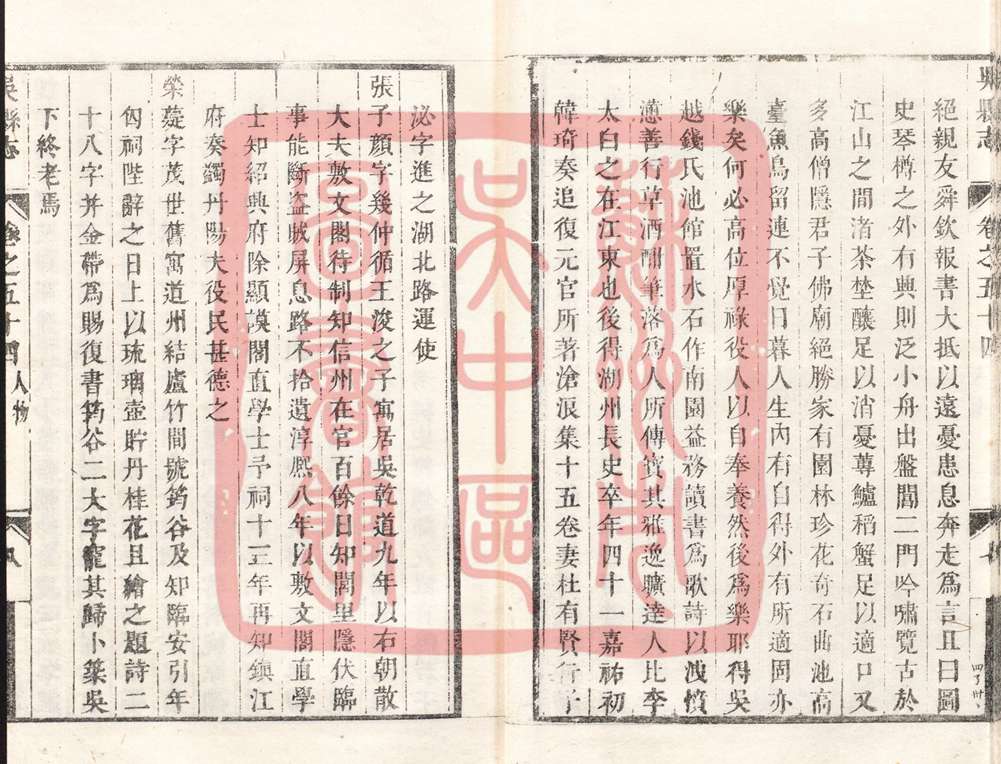 吳縣志 卷之五十四
絕親友舜欽報書大抵以遠憂患息奔走爲言且曰圖
史琴樽之外有興則泛小舟出盤閶二門吟嘯覽古於
江山之間渚茶埜釀足以消憂蓴鱸稻蟹足以適口又
多高僧隱君子佛廟絕勝家有園林珍花奇石曲池高
臺魚鳥留連不覺日暮人生內有自得外有所適固亦
樂矣何必高位厚祿役人以自奉養然後爲樂耶得吳
越錢氏池館置水石作南園益務讀書爲歌詩以洩憤
懣善行草酒酣筆落爲人所傳寶其雅逸曠達人比李
太白之在江東也後得湖州長史卒年四十一嘉祐初
韓琦奏追復元官所著滄浪集十五卷妻杜有賢行子
泌字進之湖北路運使
張子顏字幾仲循王浚之子寓居吳乾道九年以右朝散
大夫敷文閣待制知信州在官百餘日知閭里隱伏臨
事能斷盜賊屏息路不拾遺淳熙八年以敷文閣直學
士知紹興府除顯謨閣直學士予祠十三年再知鎮江
府奏蠲丹陽夫役民甚德之
榮薿字茂世舊寓道州結廬竹間號筠谷及知臨安引年
匃祠陛辭之日上以琉璃壺貯丹桂花且繪之題詩二
十八字并金帶爲賜復書筠谷二大字寵其歸卜築吳
下終老焉
吳縣志 卷之五十四 人物 八
蘇州市
吳中區
圖書館